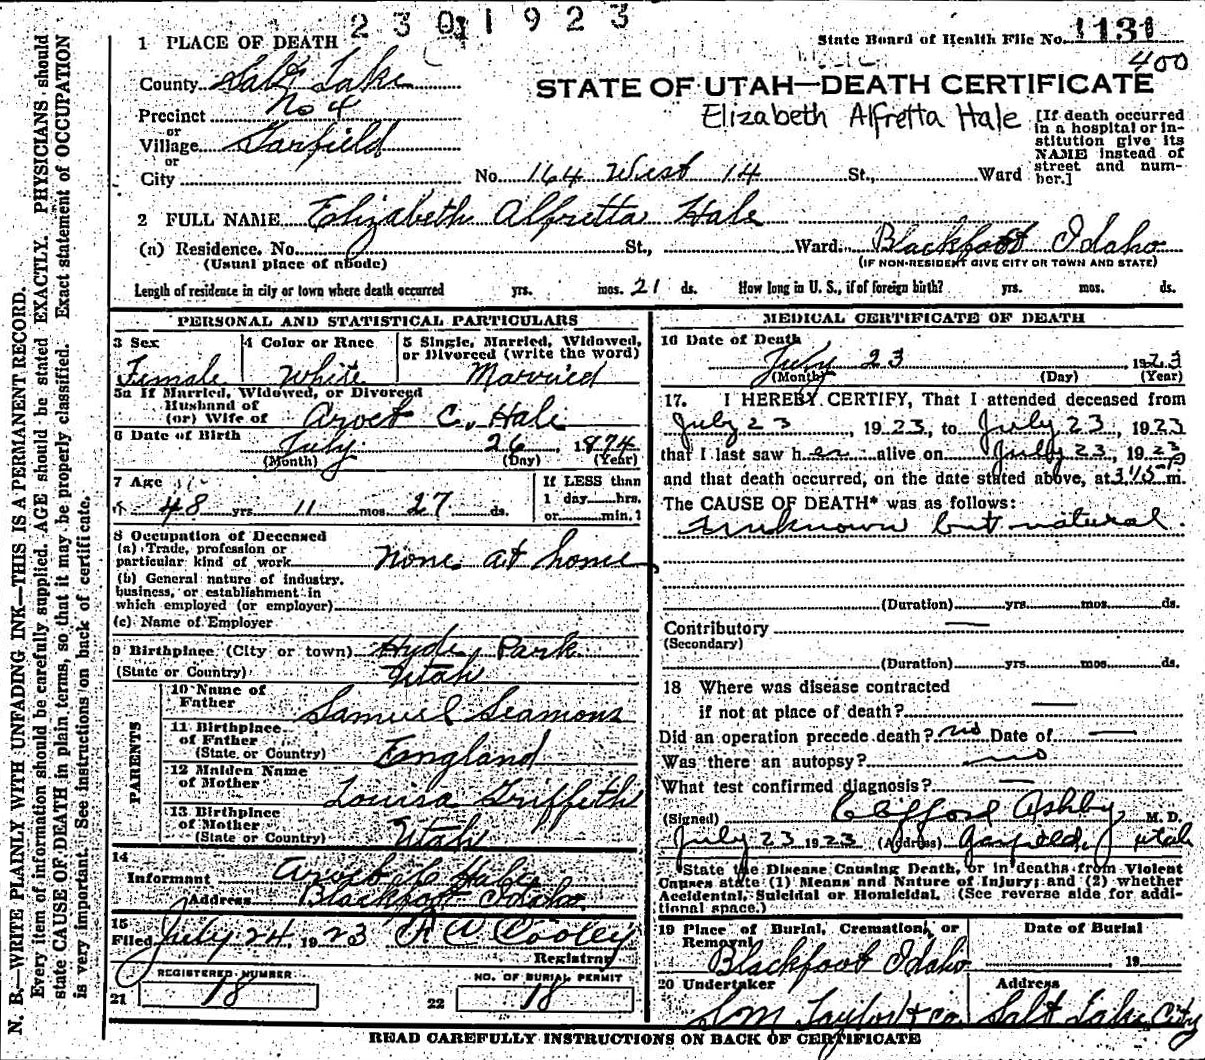 2301923
1 PLACE OF DEATH
State Board of Health File No. 1131
400
County Salt Lake
STATE OF UTAH—DEATH CERTIFICATE
Precinct No 4
Elizabeth Alfretta Hale
or
Village Garfield
or
City
No. 164 West 14 St., Ward
[If death occurred
in a hospital or in-
stitution give its
NAME instead of
street and num-
ber.]
2 FULL NAME Elizabeth Alfretta Hale
(a) Residence. No. St., Ward. Blackfoot Idaho
(Usual place of abode)
(IF NON-RESIDENT GIVE CITY OR TOWN AND STATE)
Length of residence in city or town where death occurred yrs. mos. 21 ds. How long in U. S., if of foreign birth? yrs. mos. ds.
PERSONAL AND STATISTICAL PARTICULARS
3 Sex
Female
4 Color or Race
White
5 Single, Married, Widowed,
or Divorced (write the word)
Married
5a If Married, Widowed, or Divorced
Husband of
(or) Wife of Arvet C. Hale
6 Date of Birth
July 26 1874
(Month) (Day) (Year)
7 Age
48 yrs. 11 mos. 27 ds.
If LESS than
1 day hrs.
or min.?
8 Occupation of Deceased
(a) Trade, profession or
particular kind of work none at home
(b) General nature of industry.
business, or establishment in
which employed (or employer)
(c) Name of Employer
9 Birthplace (City or town) Hyde Park
(State or Country) Utah
PARENTS
10 Name of
Father Samuel Seamons
11 Birthplace
of Father
(State or Country) England
12 Maiden Name
of Mother Louisa Griffeth
13 Birthplace
of Mother
(State or Country) Utah
14
Informant Arvet C Hale
Address Blackfoot Idaho
15
Filed July 24 1923 R W Cooley
Registrar
REGISTERED NUMBER
21 18
NO. OF BURIAL PERMIT
22 18
MEDICAL CERTIFICATE OF DEATH
16 Date of Death
July 23 1923
(Month) (Day) (Year)
17. I HEREBY CERTIFY, That I attended deceased from
July 23, 1923, to July 23, 1923
that I last saw her alive on July 23, 1923
and that death occurred, on the date stated above, at 3:15 P m.
The CAUSE OF DEATH* was as follows:
Unknown but natural.
(Duration) yrs. mos. ds.
Contributory —
(Secondary)
(Duration) yrs. mos. ds.
18 Where was disease contracted
if not at place of death? —
Did an operation precede death? no Date of —
Was there an autopsy? no
What test confirmed diagnosis? —
(Signed) Clifford Ashby, M. D.
July 23 1923 (Address) Garfield, Utah
State the Disease Causing Death, or in deaths from Violent
Causes state (1) Means and Nature of Injury; and (2) whether
Accidental, Suicidal or Homicidal. (See reverse side for addi-
tional space.)
19 Place of Burial, Cremation, or
Removal
Blackfoot Idaho
Date of Burial
19
20 Undertaker
S M Taylor & co.
Address
Salt Lake City
READ CAREFULLY INSTRUCTIONS ON BACK OF CERTIFICATE
N. B.—WRITE PLAINLY WITH UNFADING INK—THIS IS A PERMANENT RECORD.
Every item of information should be carefully supplied. AGE should be stated EXACTLY. PHYSICIANS should
state CAUSE OF DEATH in plain terms, so that it may be properly classified. Exact statement of OCCUPATION
is very important. See instructions on back of certificate.